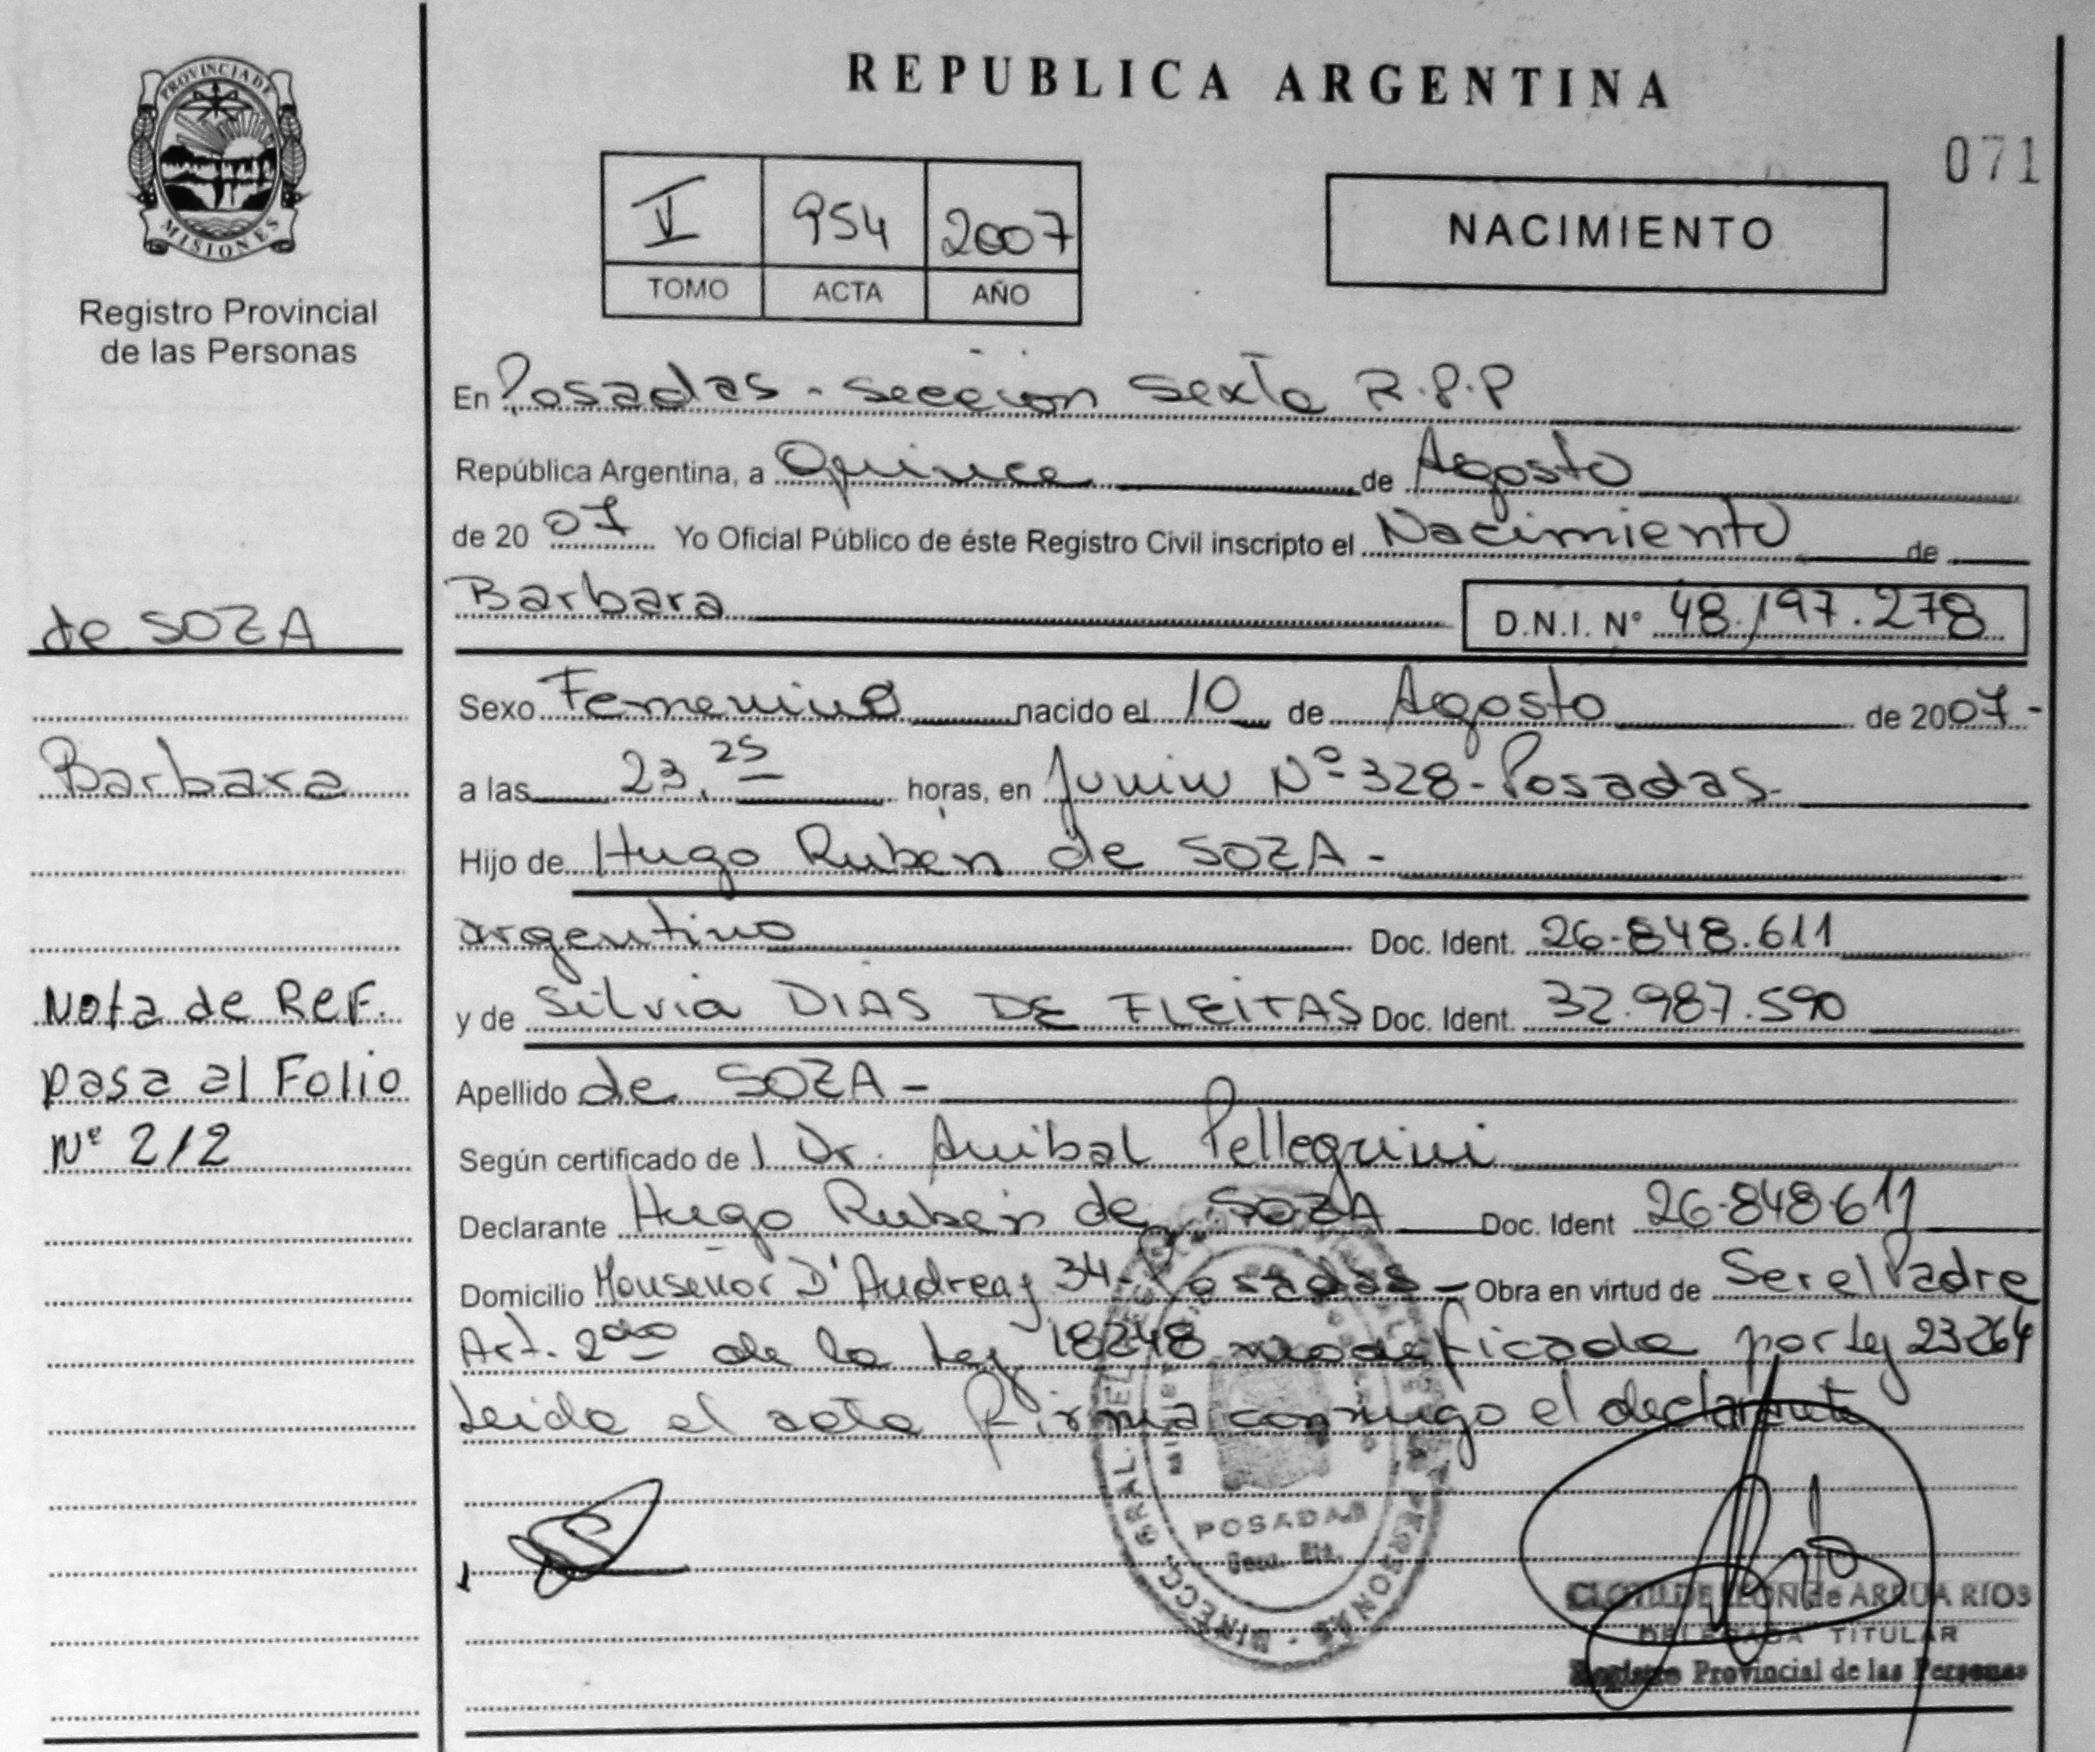 PROVINCIA DE
MISIONES
Registro Provincial
de las Personas
REPUBLICA ARGENTINA
071
V 954 2007
TOMO ACTA AÑO
NACIMIENTO
En Posadas - seccion sexta R.P.P
República Argentina, a Quince de Agosto
de 20 07 Yo Oficial Público de éste Registro Civil inscripto el Nacimiento de
Barbara D.N.I. Nº 48.197.278
de SOZA
Sexo Femenino nacido el 10 de Agosto de 2007-
Barbara
a las 23.25 horas, en Junin Nº 328 - Posadas-
Hijo de Hugo Rubén de SOZA -
argentino Doc. Ident. 26.848.611
Nota de Ref.
y de Silvia DIAS DE FLEITAS Doc. Ident. 32.987.590
pasa al Folio
Apellido de SOZA -
Nº 212
Según certificado de Dr. Anibal Pellegrini
Declarante Hugo Rubén de SOZA Doc. Ident 26.848.611
Domicilio Monseñor D'Andrea y 34 - Posadas - Obra en virtud de Ser el Padre
Art. 2do de la Ley 18248 modificada por Ley 23264
Leida el acta firma conmigo el declarante
POSADAS
CLOTILDE LEON de ARRUA RIOS
DELEGADA TITULAR
Registro Provincial de las Personas